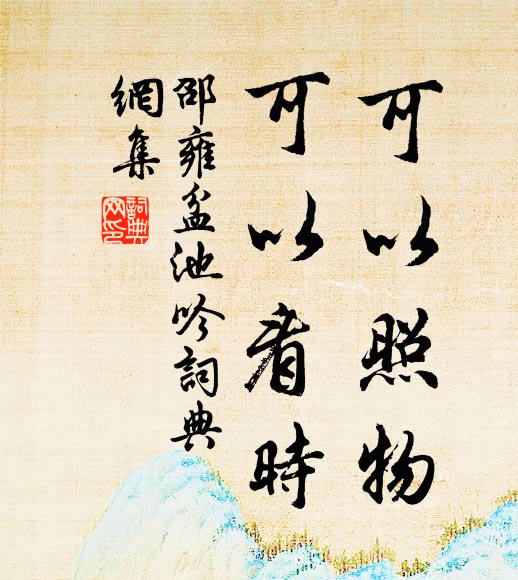 可以照物
可以看時
邵雍盆池吟詞典
網集
詞典
网印